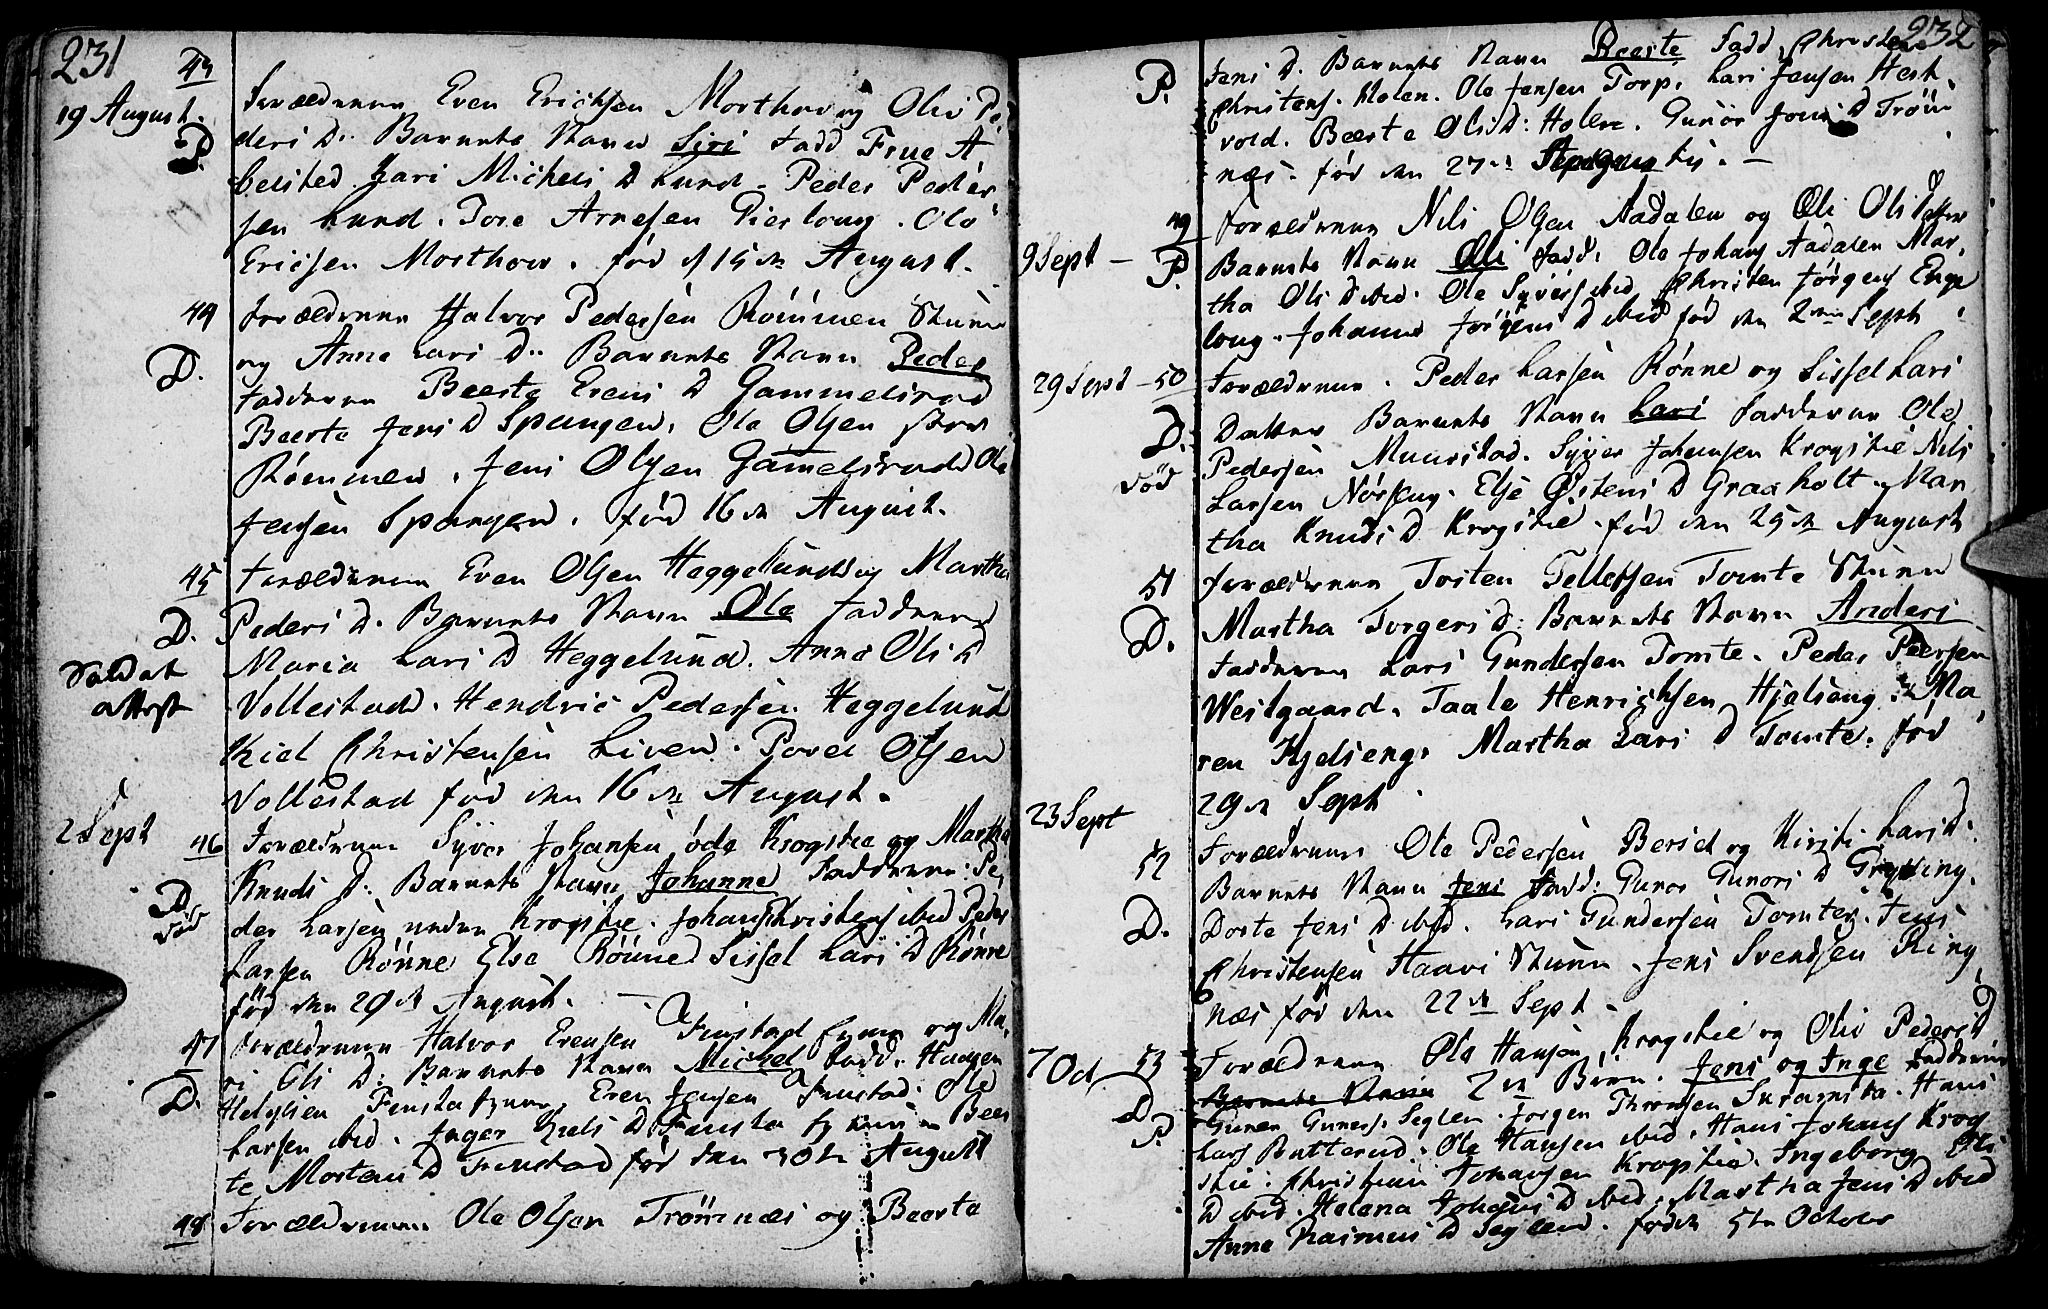 231
43
19 August.
Forældrene Even Erichsen Morthov og Oliv Pe
P.
ders D. Barnets Navn Siri Fadd Frue A
belsted Kari Michels D Lund. Peder Peder
sen Lund. Tore Arnesen Ole
Ericsen Morthow. fød d 15de August.
44
Forældrene Halvor Pedersen Rømmen
D.
og Anne Lars D. Barnets Navn Peder
Fadderne Beerte Evens D Gammelsrud
Beerte Jens D Spangen, Ole Olsen
Rømmen. Jens Olsen Gamelsrud Ole
Jensen Spangen. fød 16de August.
45
Forældrene Even Olsen Heggelund og Martha
D.
Peders D. Barnets Navn Ole Fadderne
Soldat
Maria Lars D Heggelund. Anne Ols D
attest
Vollestad. Hendric Pedersen Heggelund
Kiel Christensen Liven. Povel Olsen
Vollestad fød den 16de August.
2 Sept
46
Forældrene Syver Johansen øde Krogstie og Martha
Knuds D. Barnets Navn Johanne Fadderne Pe
D.
død
der Larsen Krogstie. Johans Christens ibid Peder
Larsen Rønne Else Rønne Sissel Lars D Rønne
fød den 29de August.
47
Forældrene Halvor Evensen Finstad og Ma
ri Ols D. Barnets Navn Michel Fadd. Haagen
D.
Helgesen Even Jensen Finstad. Ole
Larsen ibid. Inger Niels D Beer
te Mortens D Finstad fød den 30te August
48
Forældrene Ole Olsen Trømnes og Beerte
232
P.
Jens D. Barnets Navn Beerte Fadd Christen
Christens. Holen. Ole Jensen Torp. Lars Jensen Hest
vold. Beerte Ols D: Holen. Gunør Jons D Trøm
nes. fød den 27de
49
Forældrene Nils Olsen Aadalen og Oli Ols Datter
9 Sept
P.
Barnets Navn Oli Fadd. Ole Johans Aadalen Mar
tha Ols D ibid. Ole Syvers ibid Christen Jørgens Enge
loug. Johanne Jørgens D ibid fød den 2den Sept.
29 Sept
50
Forældrene. Peder Larsen Rønne og Sissel Lars
D.
Datter Barnets Navn Lars Fadderne Ole
død
Pedersen Muurstad. Syver Johansen Krogstie Nils
Larsen Nørseng. Else Østens D Graaholt. Mar
tha Knuds D Krogstie. fød den 25de August
51
Forældrene Tosten Tellefsen Tomte
D.
Martha Torgers D: Barnets Navn Anders
Fadderne Lars Gundersen Tomte. Peder Peersen
Westgaard. Taale Henrichsen Hjelseng. Ma
ren Hjelseng. Martha Lars D Tomte. fød
29de Sept.
23 Sept
52
Forældrene Ole Pedersen Berid og Kirsti Lars D:
Barnets Navn Jens Fadd: Gunor Gunors D
D.
Dorte Jens D ibid. Lars Gundersen Tomter. Jens
Christensen Haavi Jens Svendsen Ring
nes fød den 22de Sept.
7 Oct
53
Forældrene Ole Hansen Krogstie og Oliv Peders D
Barnets Navn 2de Børn. Jens og Inge Fadderne
D
P
Gunner Gunners. Seglen. Jørgen Thronsen Hans
Lars Butterud. Ole Hansen ibid. Hans Johans Krog
stie. Christian Johansen Krogstie. Ingeborg Ols
D ibid. Helena Johans D ibid. Martha Jens D ibid
Anne Rasmus D Seglend. fød 5te October